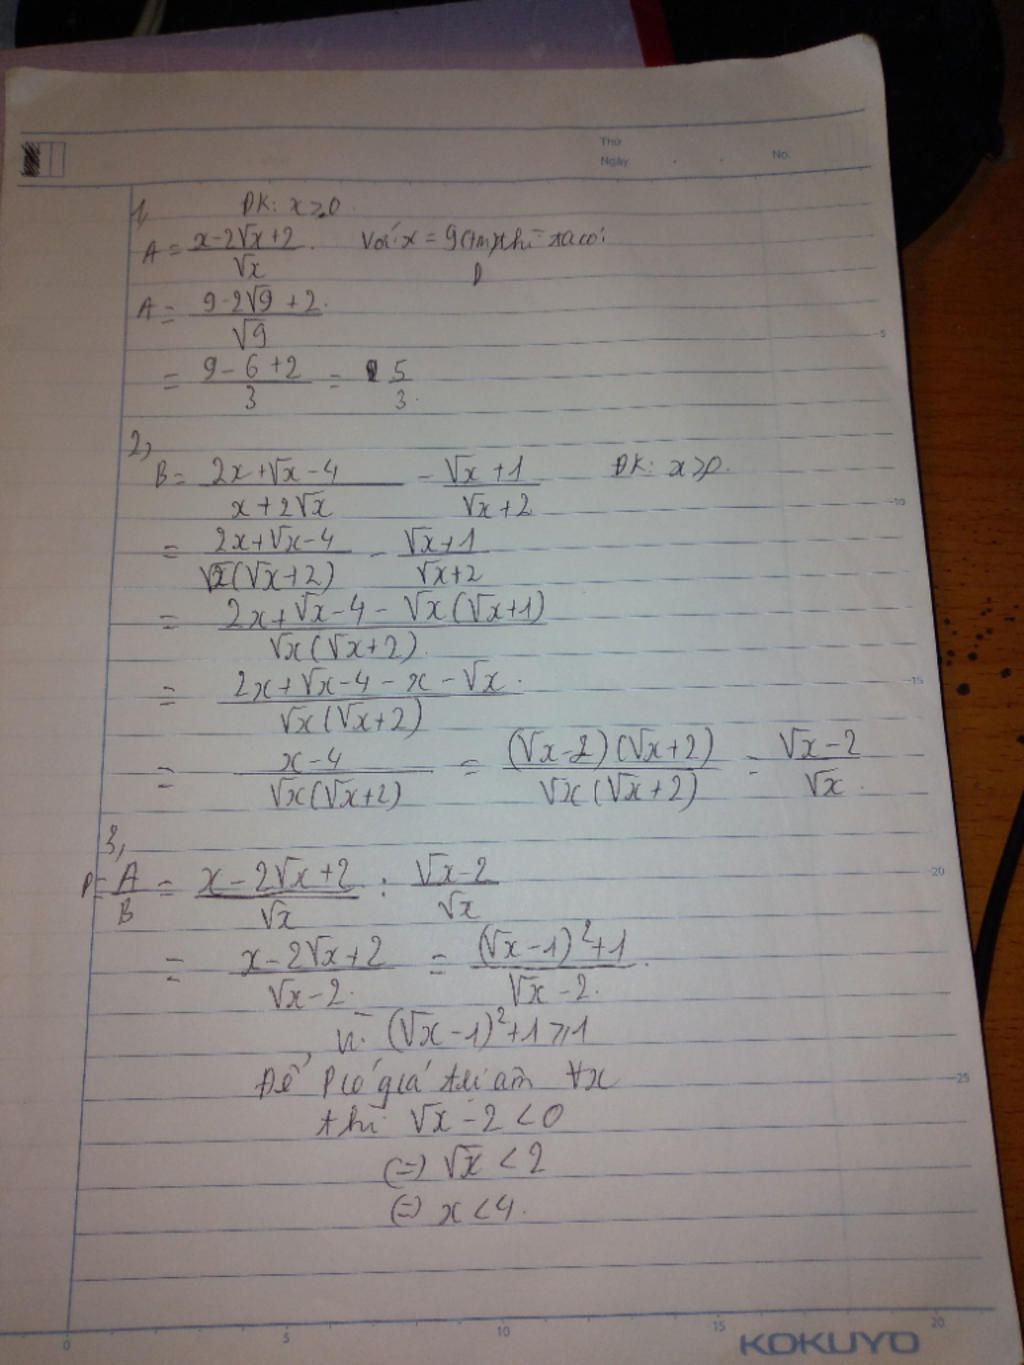 Thứ
Ngày . . No.
1, ĐK: x ≥ 0
A = \frac{x-2√x+2}{√x}. Với x = 9 (tm) thì ta có:
A = \frac{9-2√9+2}{√9}
= \frac{9-6+2}{3} = \frac{5}{3}.
2,
B = \frac{2x+√x-4}{x+2√x} - \frac{√x+1}{√x+2} ĐK: x>0.
= \frac{2x+√x-4}{√x(√x+2)} - \frac{√x+1}{√x+2}
= \frac{2x+√x-4-√x(√x+1)}{√x(√x+2)}.
= \frac{2x+√x-4-x-√x}{√x(√x+2)}.
= \frac{x-4}{√x(√x+2)} = \frac{(√x-2)(√x+2)}{√x(√x+2)} = \frac{√x-2}{√x}.
3,
P = \frac{A}{B} = \frac{x-2√x+2}{√x} : \frac{√x-2}{√x}
= \frac{x-2√x+2}{√x-2} = \frac{(√x-1)²+1}{√x-2}.
Vì (√x-1)²+1 ≥ 1
Để P có giá trị âm ∀x
thì √x-2 < 0
(=) √x < 2
(=) x < 4.
5
10
15
20
25
0 5 10 15 20
KOKUYO